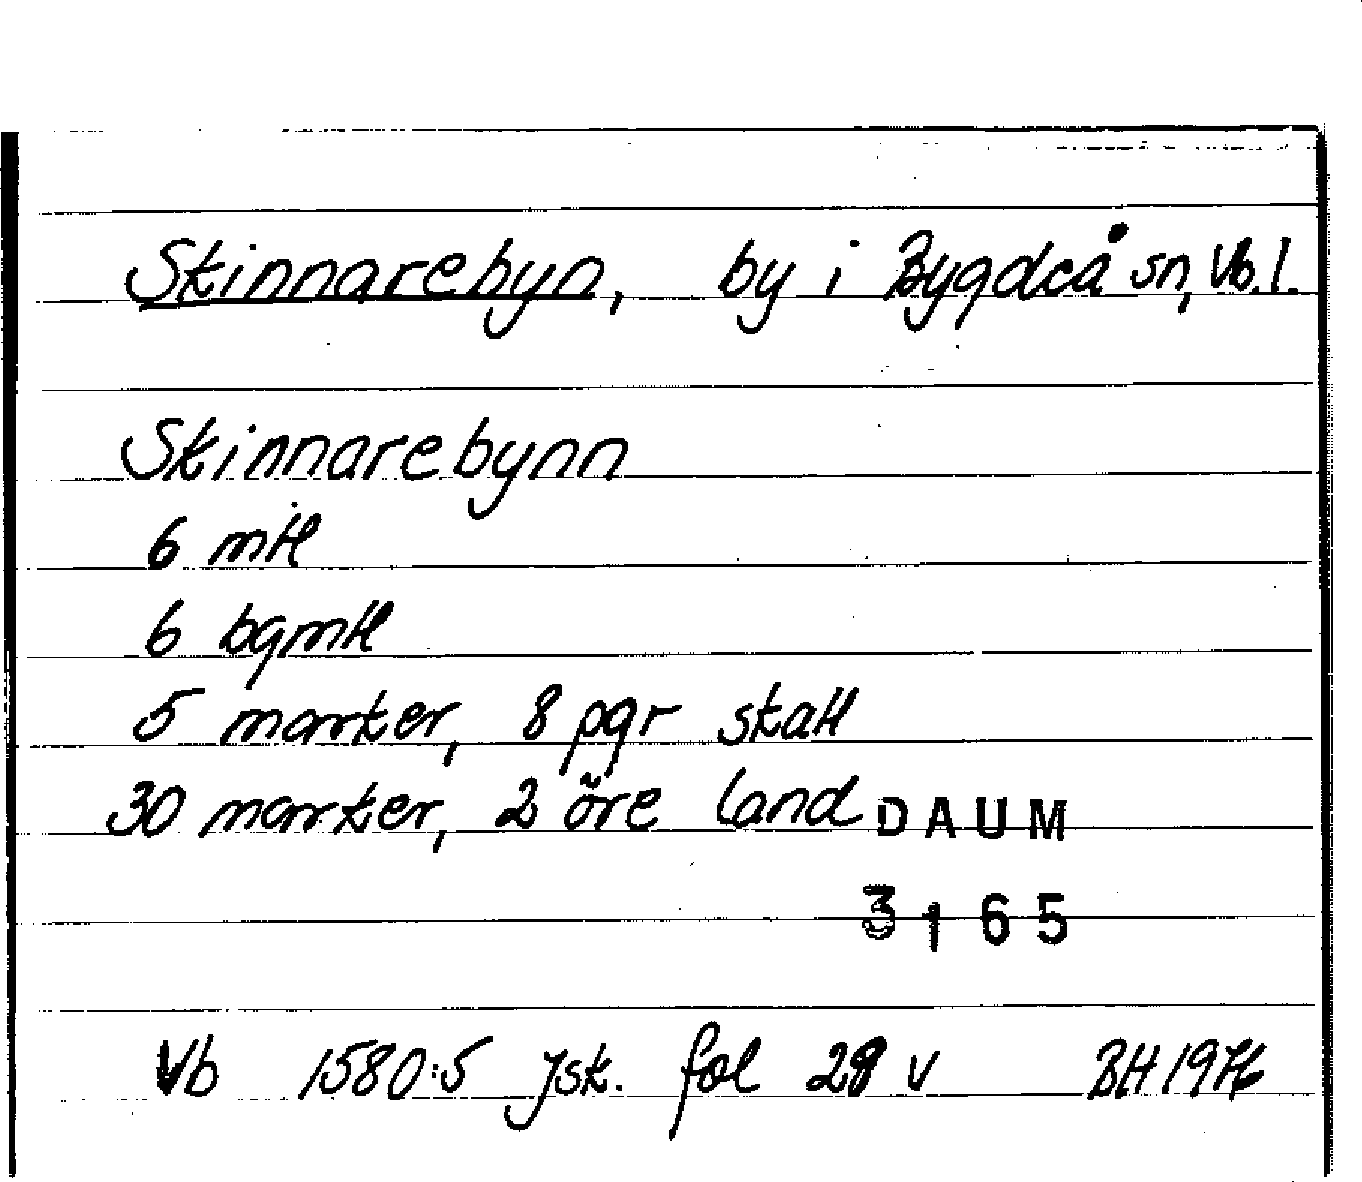 Skinnarebyn, by i Bygdeå sn, Vb. l.
Skinnarebynn
6 mtl
6 bgmtl
5 marker, 8 pgr skatt
30 marker, 2 öre land
DAUM
3165
Vb 1580:5 Jsk. fol 28 v BH 1976